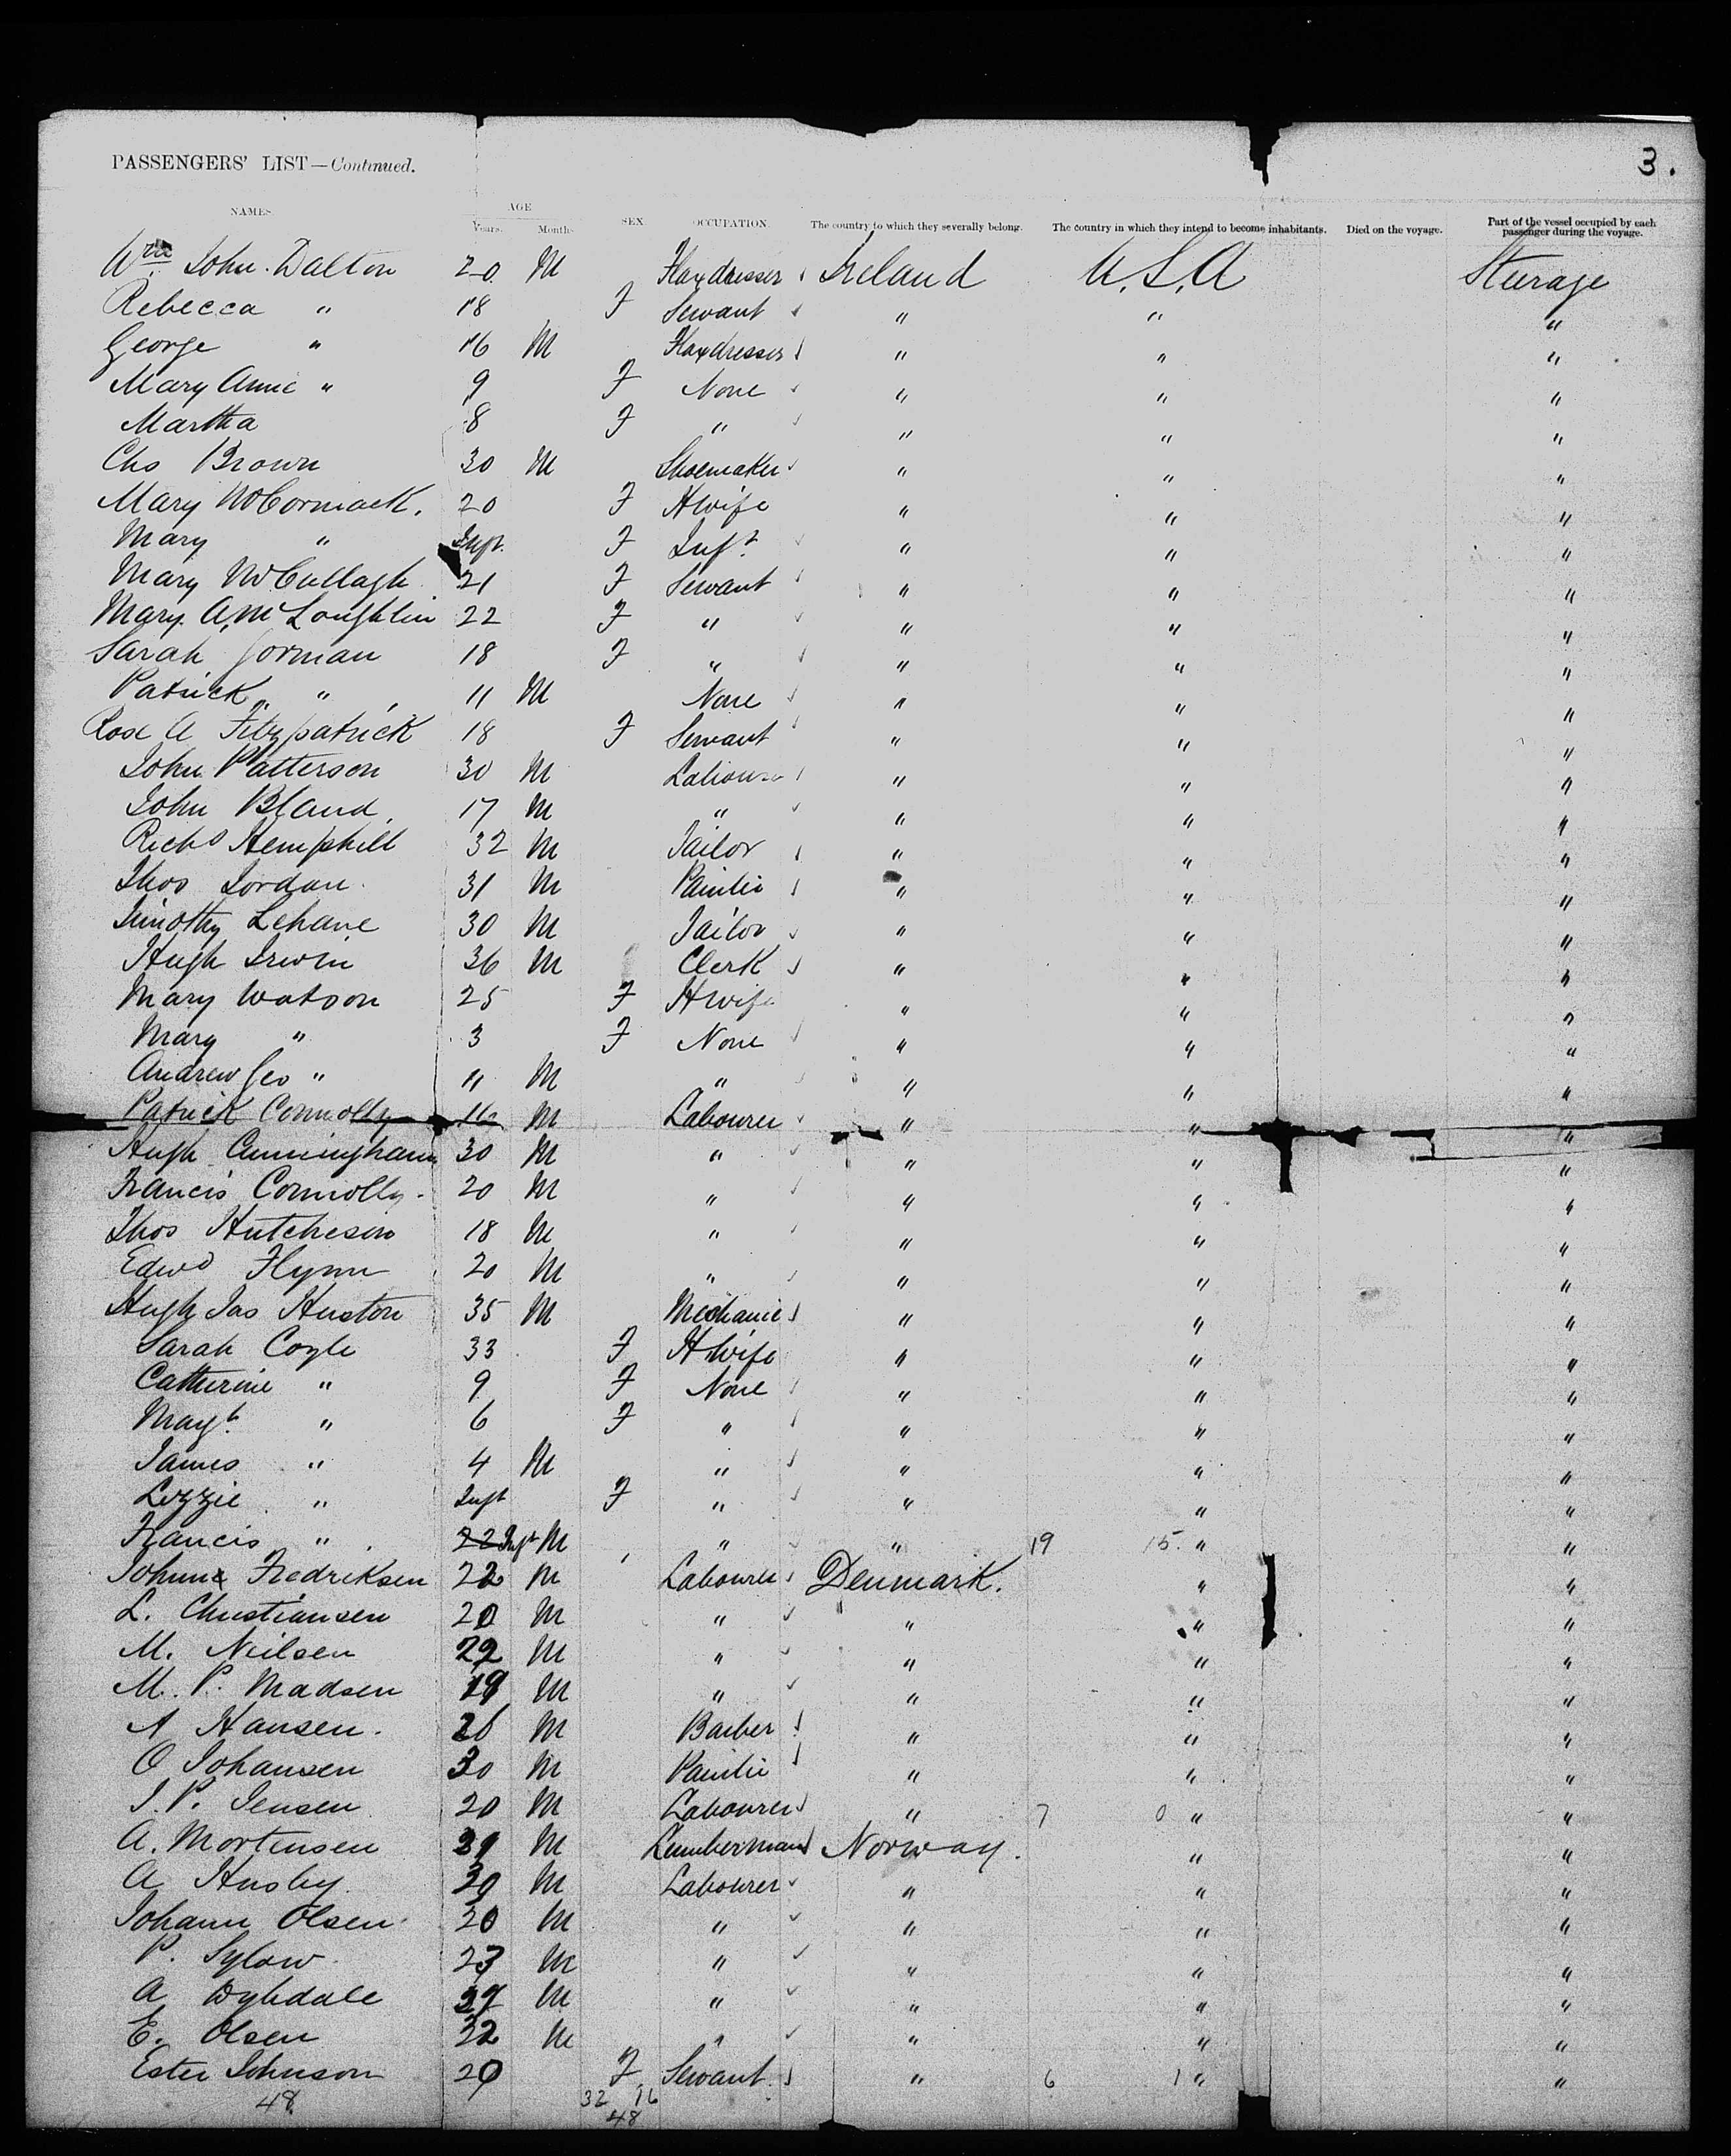 3.
PASSENGERS' LIST—Continued.
NAMES. AGE SEX OCCUPATION. The country to which they severally belong. The country in which they intend to become inhabitants. Died on the voyage. Part of the vessel occupied by each passenger during the voyage.
Years. Months
Wm John Dalton 20. M Flaxdresser Ireland U.S.A Steerage
Rebecca " 18 F Servant " " "
George " 16 M Flaxdresser " " "
Mary Annie " 9 F None " " "
Martha 8 F " " " "
Chs Brown 30 M Shoemaker " " "
Mary McCormack. 20 F Hwife " " "
Mary " Inft. F Inft. " " "
Mary McCullagh 21 F Servant " " "
Mary A. McLoughlin 22 F " " " "
Sarah Gorman 18 F " " " "
Patrick " 11 M None " " "
Rose A Fitzpatrick 18 F Servant " " "
John Patterson 30 M Labourer " " "
John Bland 17 M " " " "
Richd Hemphill 32 M Tailor " " "
Thos Jordan 31 M Painter " " "
Timothy Lehane 30 M Tailor " " "
Hugh Irwin 36 M Clerk " " "
Mary Watson 25 F Hwife " " "
Mary " 3 F None " " "
Andrew Geo " 11 M " " " "
Patrick Connolly 16 M Labourer " " "
Hugh Cunningham 30 M " " " "
Francis Connolly 20 M " " " "
Thos Hutcheson 18 M " " " "
Edwd Flynn 20 M " " " "
Hugh Jas Huston 35 M Mechanic " " "
Sarah Coyle 33 F Hwife " " "
Catherine " 9 F None " " "
Magt. " 6 F " " " "
James " 4 M " " " "
Lizzie " Inft F " " " "
Francis " 22 Inft M " " 19 15. " "
Fredriksen 22 M Labourer Denmark. " "
L. Christiansen 20 M " " " "
M. Neilsen 22 M " " " "
M. P. Madsen 19 M " " " "
A Hansen. 26 M Barber " " "
O Johansen 30 M Painter " " "
J. P. Jensen 20 M Labourer " 7 0 " "
A. Mortensen 31 M Lumberman Norway. " "
A Husby M Labourer " " "
Johann Olsen 20 M " " " "
P. Sylow 23 M " " " "
A Dybdale M " " " "
E. Olsen 22 M " " " "
Ester Johnson 20 F Servant " 6 1 " "
48 32 16
48